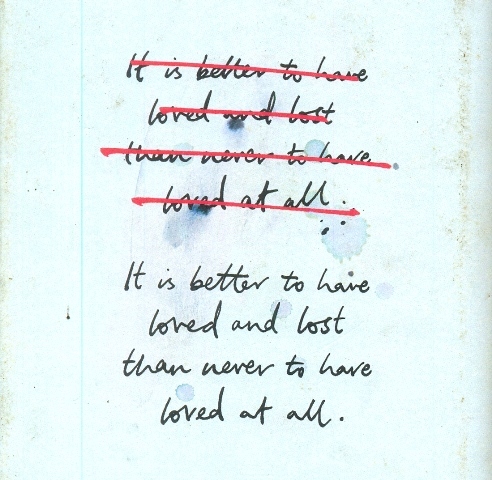 It is better to have
loved and lost
than never to have
loved at all.
It is better to have
loved and lost
than never to have
loved at all.